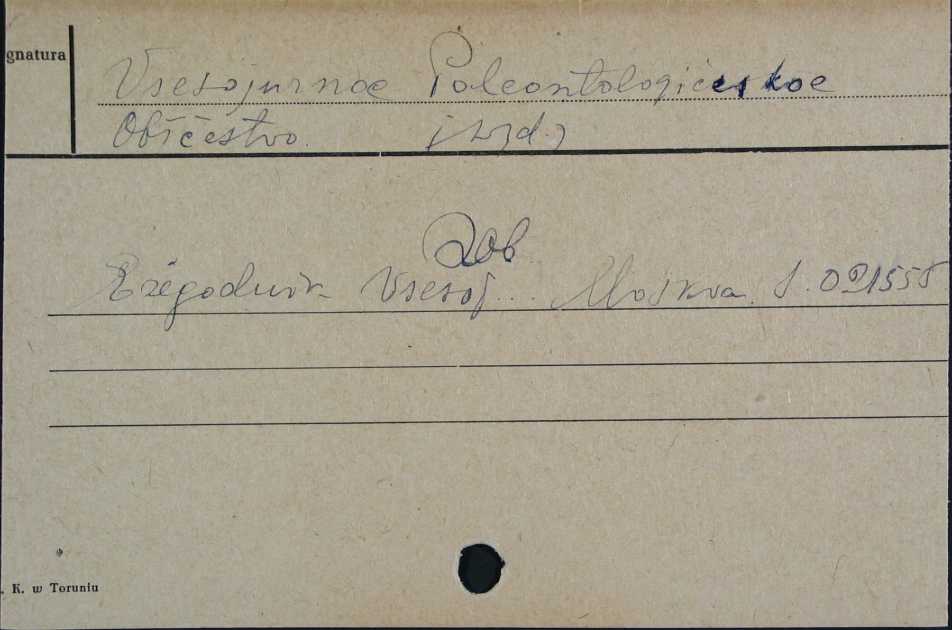 gnatura
Vsesojuznoe Paleontologičeskoe
Obščestvo. (wyd.)
Zob
Ežegodnik Vsesoj... Moskva.
. K. w Toruniu